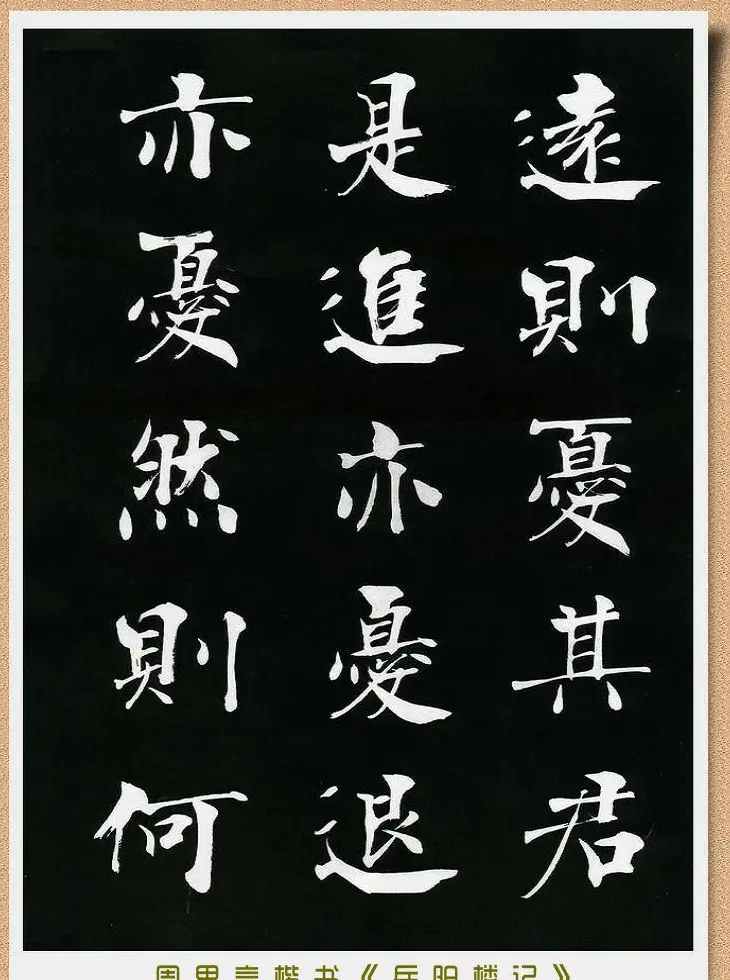 遠則憂其君
是進亦憂退
亦憂然則何
楷书《岳阳楼记》